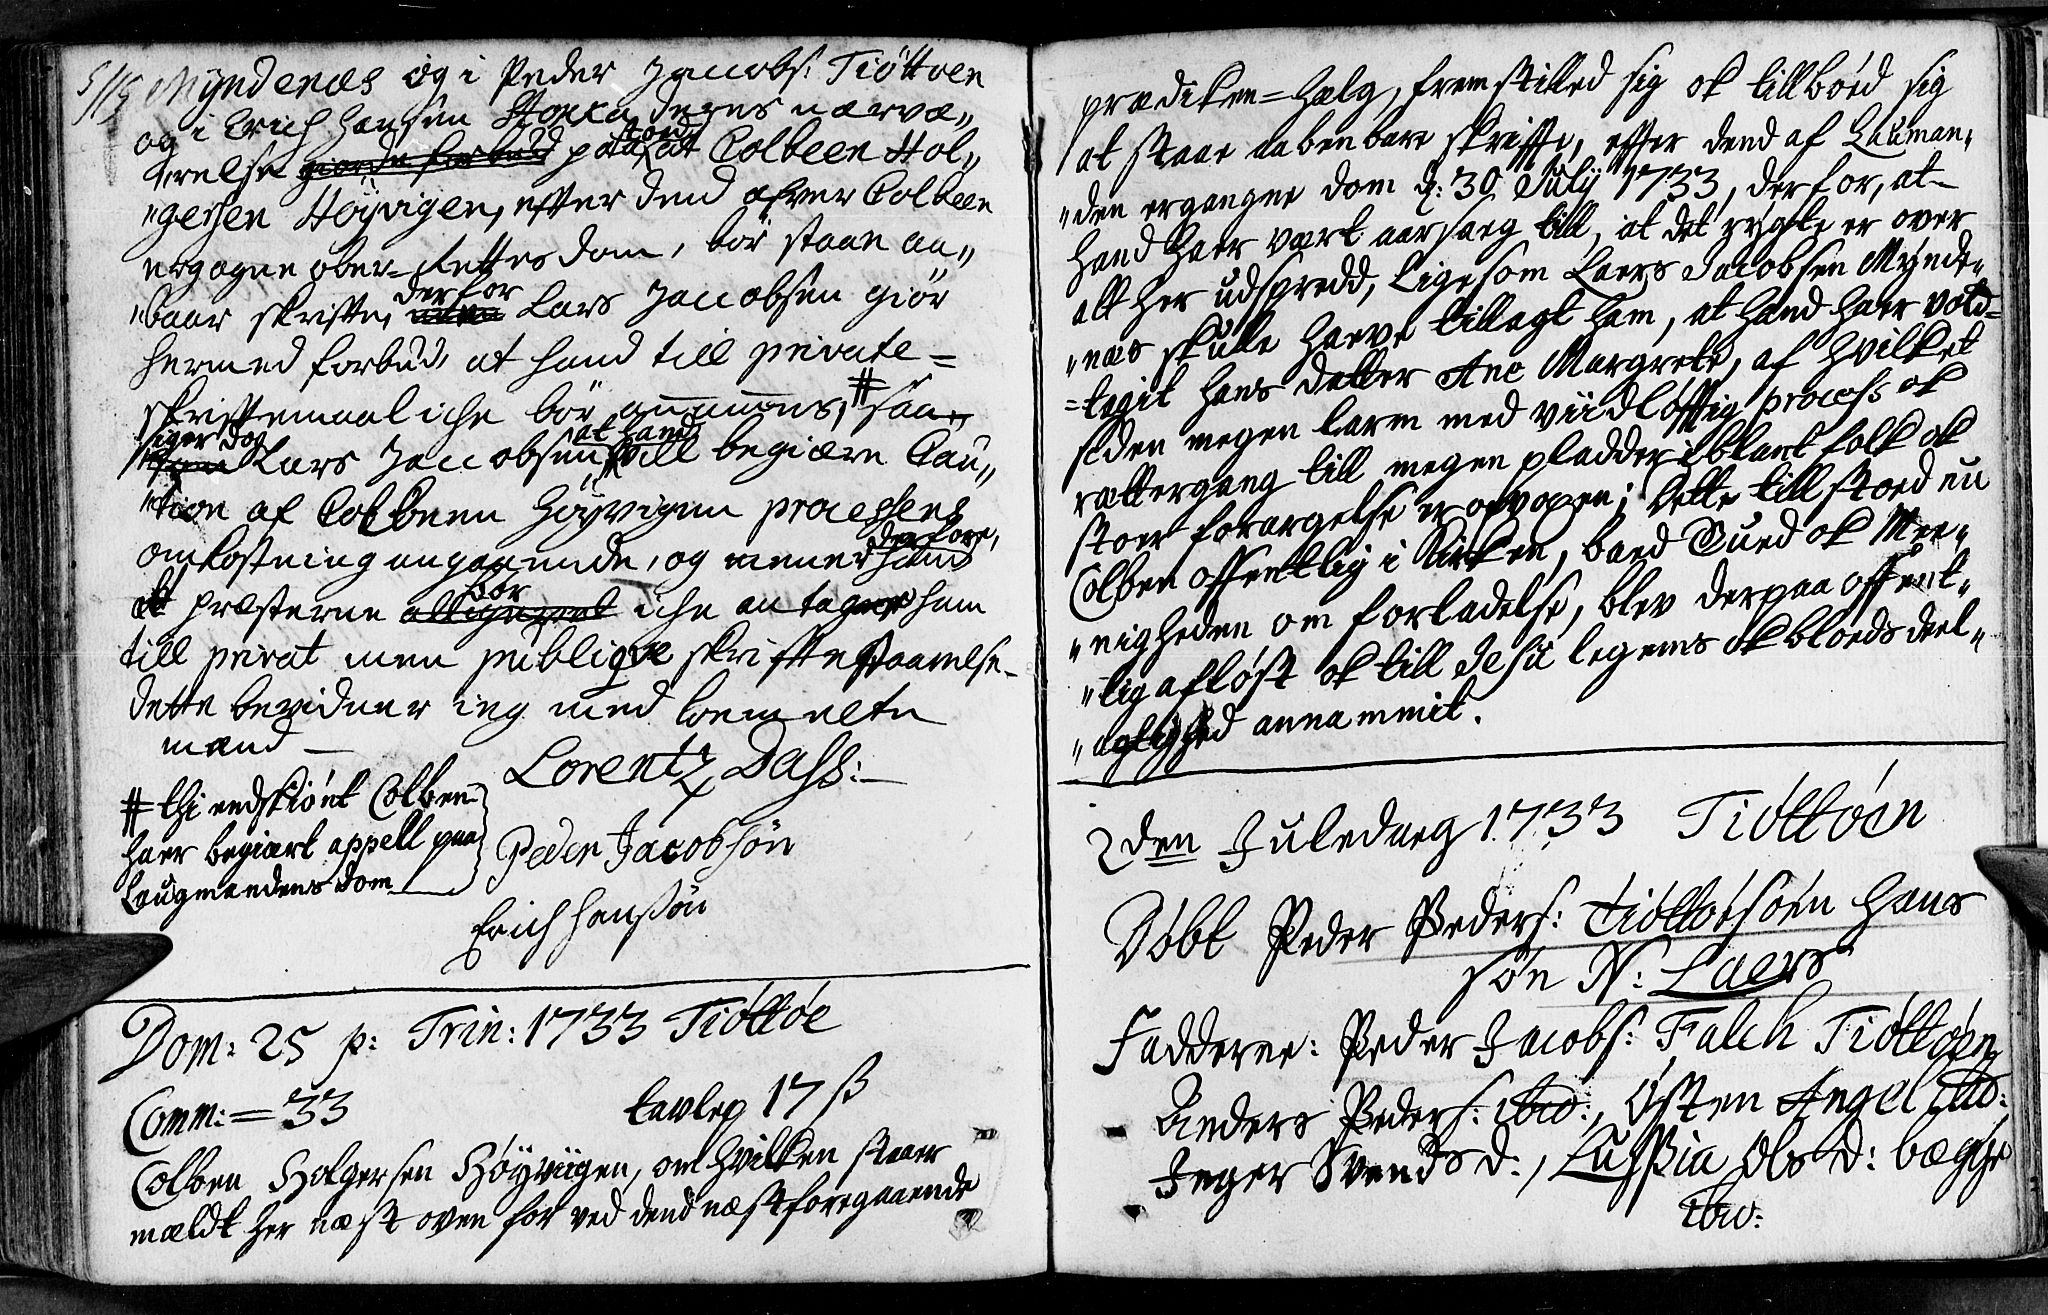 Myndenæs og i Peder Jacobs: Tiøttoen
og i Erich Hansen Stocka deres nærvæ„
relse giorde forbud paa, at Colbeen Hol„
„gersen Høyvigen, efter dend ofver Colbeen
ergagne ober-Rettes dom, bør staae aa„
„baar skrifte, derfor Lars Jacobsen giør
hermed forbud, at hand till private=
skriftemaal iche bør annammes, # saa
siger dog Lars Jacobsen, at hand vill begiære Cau„
„tion af Colbeen Høyvigen processens
omkostning angaaende, og mener hand derfore,
at Præsterne alligevel bør iche antager ham
till privat men publique skriftestaaelse
dette bevidner ieg med bemelte
mænd —
Lorentz Dass:
# thi endskiønt Colben
haer begiært appell paa
Laugmandens dom
Peder Jacobsøn
Erich Hansøn
Dom: 25 p: Trin: 1733 Tiøttøe
Comm: = 33 tavlep 17 ß
Colben Holgersen Høyviigen, om hvilken staaer
mældt her næst oven for ved dend næstforegaaende
prædiken=hælg, fremstilled sig ok tillbøed sig
at staae aabenbare skrifte, efter dend af Lauman„
„den ergangne dom d: 30 July 1733, derfor, at
hand haer vært aarsaeg till, at det rygte er over
alt her udspredd, ligesom Laers Jacobsen Mynde„
„næs skulle haeve tillagt ham, at hand haer vold=
=tagit hans datter Ane Margrete, af hvilket
siden megen larm med viidløfftig process ok
rættergang till megen pladder iblant folk ok
stoer forargelse er opvoxen; dette tillstoed nu
Colben offentlig i Kirken, baed Gued ok Mee„
„nigheden om forladelse, blev derpaa offent„
„lig afløst ok till Jesu legems ok bloeds deel„
„agtighed annammit.
2den Juledaeg 1733 Tiøttøen
Døbt Peder Peders: Tiøttøesøen hans
søn N: Laers
Fadderne: Peder Jacobs: Falch Tiøttøen
Anders Peders: ibid:, Østen Angel ibid:
Inger Svends d:, Lussia Ols d: begge
ibid: